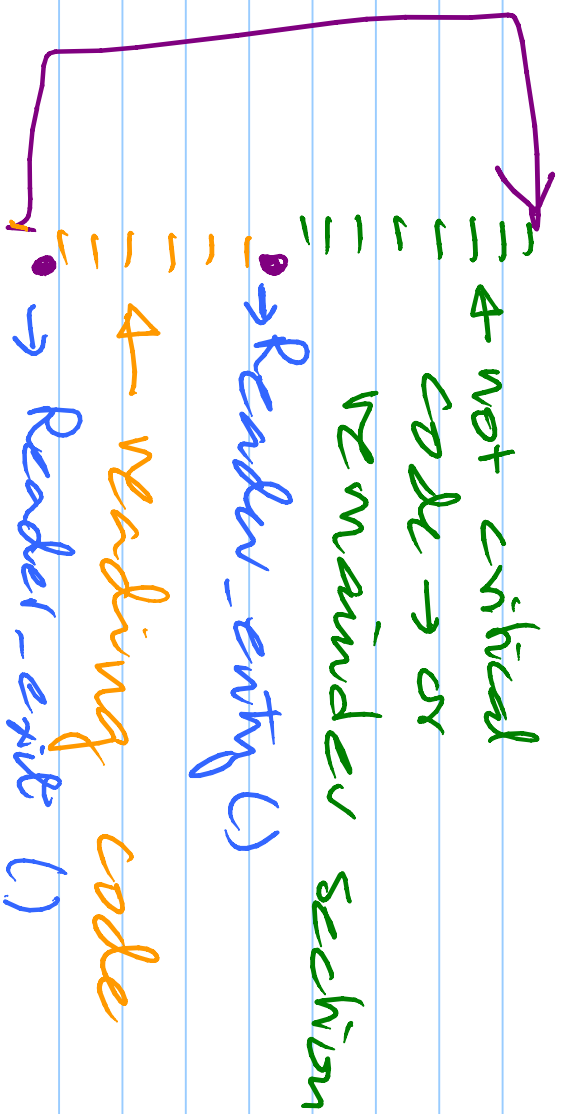 ← not critical
code → or
remainder section
→ Reader_entry()
← reading code
→ Reader_exit()